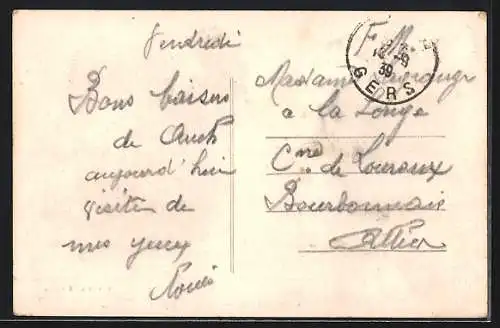 Vendredi
Bons baisers
de Auch
aujourd'hui
visite de
mes yeux
Louis
F. M.
39
GERS
Madame
a la Longe
Cne de Louroux
Bourbonnais
Allier